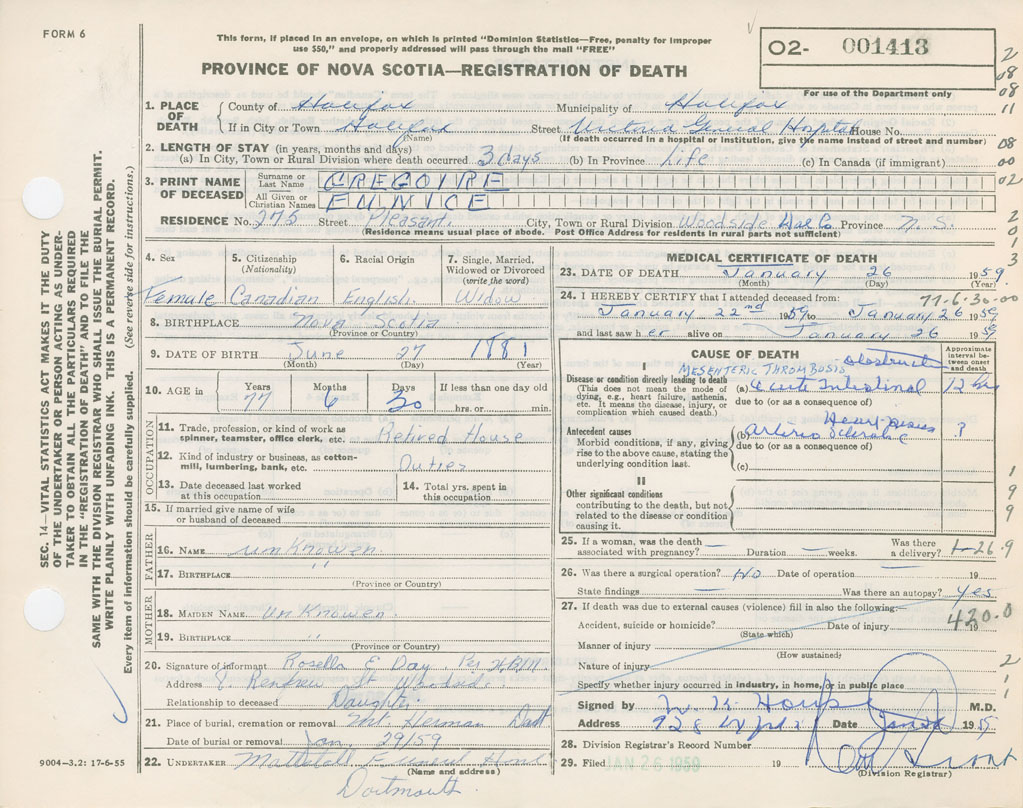 FORM 6
This form, if placed in an envelope, on which is printed "Dominion Statistics—Free, penalty for improper
use $50," and properly addressed will pass through the mail "FREE"
PROVINCE OF NOVA SCOTIA—REGISTRATION OF DEATH
O2- 001413
For use of the Department only
2
08
08
11
08
00
02
2
0
1
3
1. PLACE OF DEATH
County of Halifax Municipality of Halifax
If in City or Town Halifax Street Victoria General Hospital House No.
(Name) (If death occurred in a hospital or institution, give the name instead of street and number)
2. LENGTH OF STAY (in years, months and days)
(a) In City, Town or Rural Division where death occurred 3 days (b) In Province Life (c) In Canada (if immigrant)
3. PRINT NAME OF DECEASED
Surname or Last Name GREGOIRE
All Given or Christian Names EUNICE
RESIDENCE No. 275 Street Pleasant. City, Town or Rural Division Woodside Hal Co Province N. S.
(Residence means usual place of abode. Post Office Address for residents in rural parts not sufficient)
4. Sex
Female
5. Citizenship (Nationality)
Canadian
6. Racial Origin
English.
7. Single, Married, Widowed or Divorced (write the word)
Widow
8. BIRTHPLACE Nova Scotia
(Province or Country)
9. DATE OF BIRTH June 27 1881
(Month) (Day) (Year)
10. AGE in Years Months Days If less than one day old
77 6 30 hrs. or min.
OCCUPATION
11. Trade, profession, or kind of work as spinner, teamster, office clerk, etc. Retired House
12. Kind of industry or business, as cotton-mill, lumbering, bank, etc. Duties
13. Date deceased last worked at this occupation
14. Total yrs. spent in this occupation
15. If married give name of wife or husband of deceased
FATHER
16. NAME unknowen.
17. BIRTHPLACE "
(Province or Country)
MOTHER
18. MAIDEN NAME unknowen.
19. BIRTHPLACE "
(Province or Country)
20. Signature of informant Rosella E Day. Per H.B.M
Address 8. Renfrew St Woodside.
Relationship to deceased Daughter
21. Place of burial, cremation or removal Mt. Herman Dart
Date of burial or removal Jan, 29/59
22. UNDERTAKER Mattatall Funeral Home
(Name and address)
Dartmouth.
MEDICAL CERTIFICATE OF DEATH
23. DATE OF DEATH January 26 1959
(Month) (Day) (Year)
77-6-30-00
24. I HEREBY CERTIFY that I attended deceased from:
January 22nd 1959 to January 26 1959
and last saw her alive on January 26 1959
CAUSE OF DEATH
Approximate interval between onset and death
I
MESENTERIC THROMBOSIS obstruction
Disease or condition directly leading to death (a) Acute Intestinal 12 hrs
(This does not mean the mode of dying, e.g., heart failure, asthenia, etc. It means the disease, injury, or complication which caused death.)
due to (or as a consequence of)
Heart Disease
Antecedent causes (b) arterio sclerotic ?
Morbid conditions, if any, giving rise to the above cause, stating the underlying condition last.
due to (or as a consequence of)
(c)
II
Other significant conditions contributing to the death, but not related to the disease or condition causing it.
1
9
9
9
25. If a woman, was the death associated with pregnancy? — Duration — weeks. Was there a delivery?
1-26.9
26. Was there a surgical operation? No Date of operation — 19
State findings — Was there an autopsy? Yes
27. If death was due to external causes (violence) fill in also the following:
Accident, suicide or homicide? Date of injury 19
(State which)
420.0
Manner of injury
(How sustained)
Nature of injury
Specify whether injury occurred in industry, in home, or in public place
2
1
1
Signed by M.D.
Address Date Jan 26 19
28. Division Registrar's Record Number
29. Filed JAN 26 1959 19
(Division Registrar)
SEC. 14—VITAL STATISTICS ACT MAKES IT THE DUTY
OF THE UNDERTAKER OR PERSON ACTING AS UNDER-
TAKER TO OBTAIN ALL THE PARTICULARS REQUIRED
IN THE "REGISTRATION OF DEATH" AND TO FILE THE
SAME WITH THE DIVISION REGISTRAR WHO SHALL ISSUE THE BURIAL PERMIT.
WRITE PLAINLY WITH UNFADING INK. THIS IS A PERMANENT RECORD.
Every item of information should be carefully supplied. (See reverse side for instructions.)
9004—3.2: 17-6-55